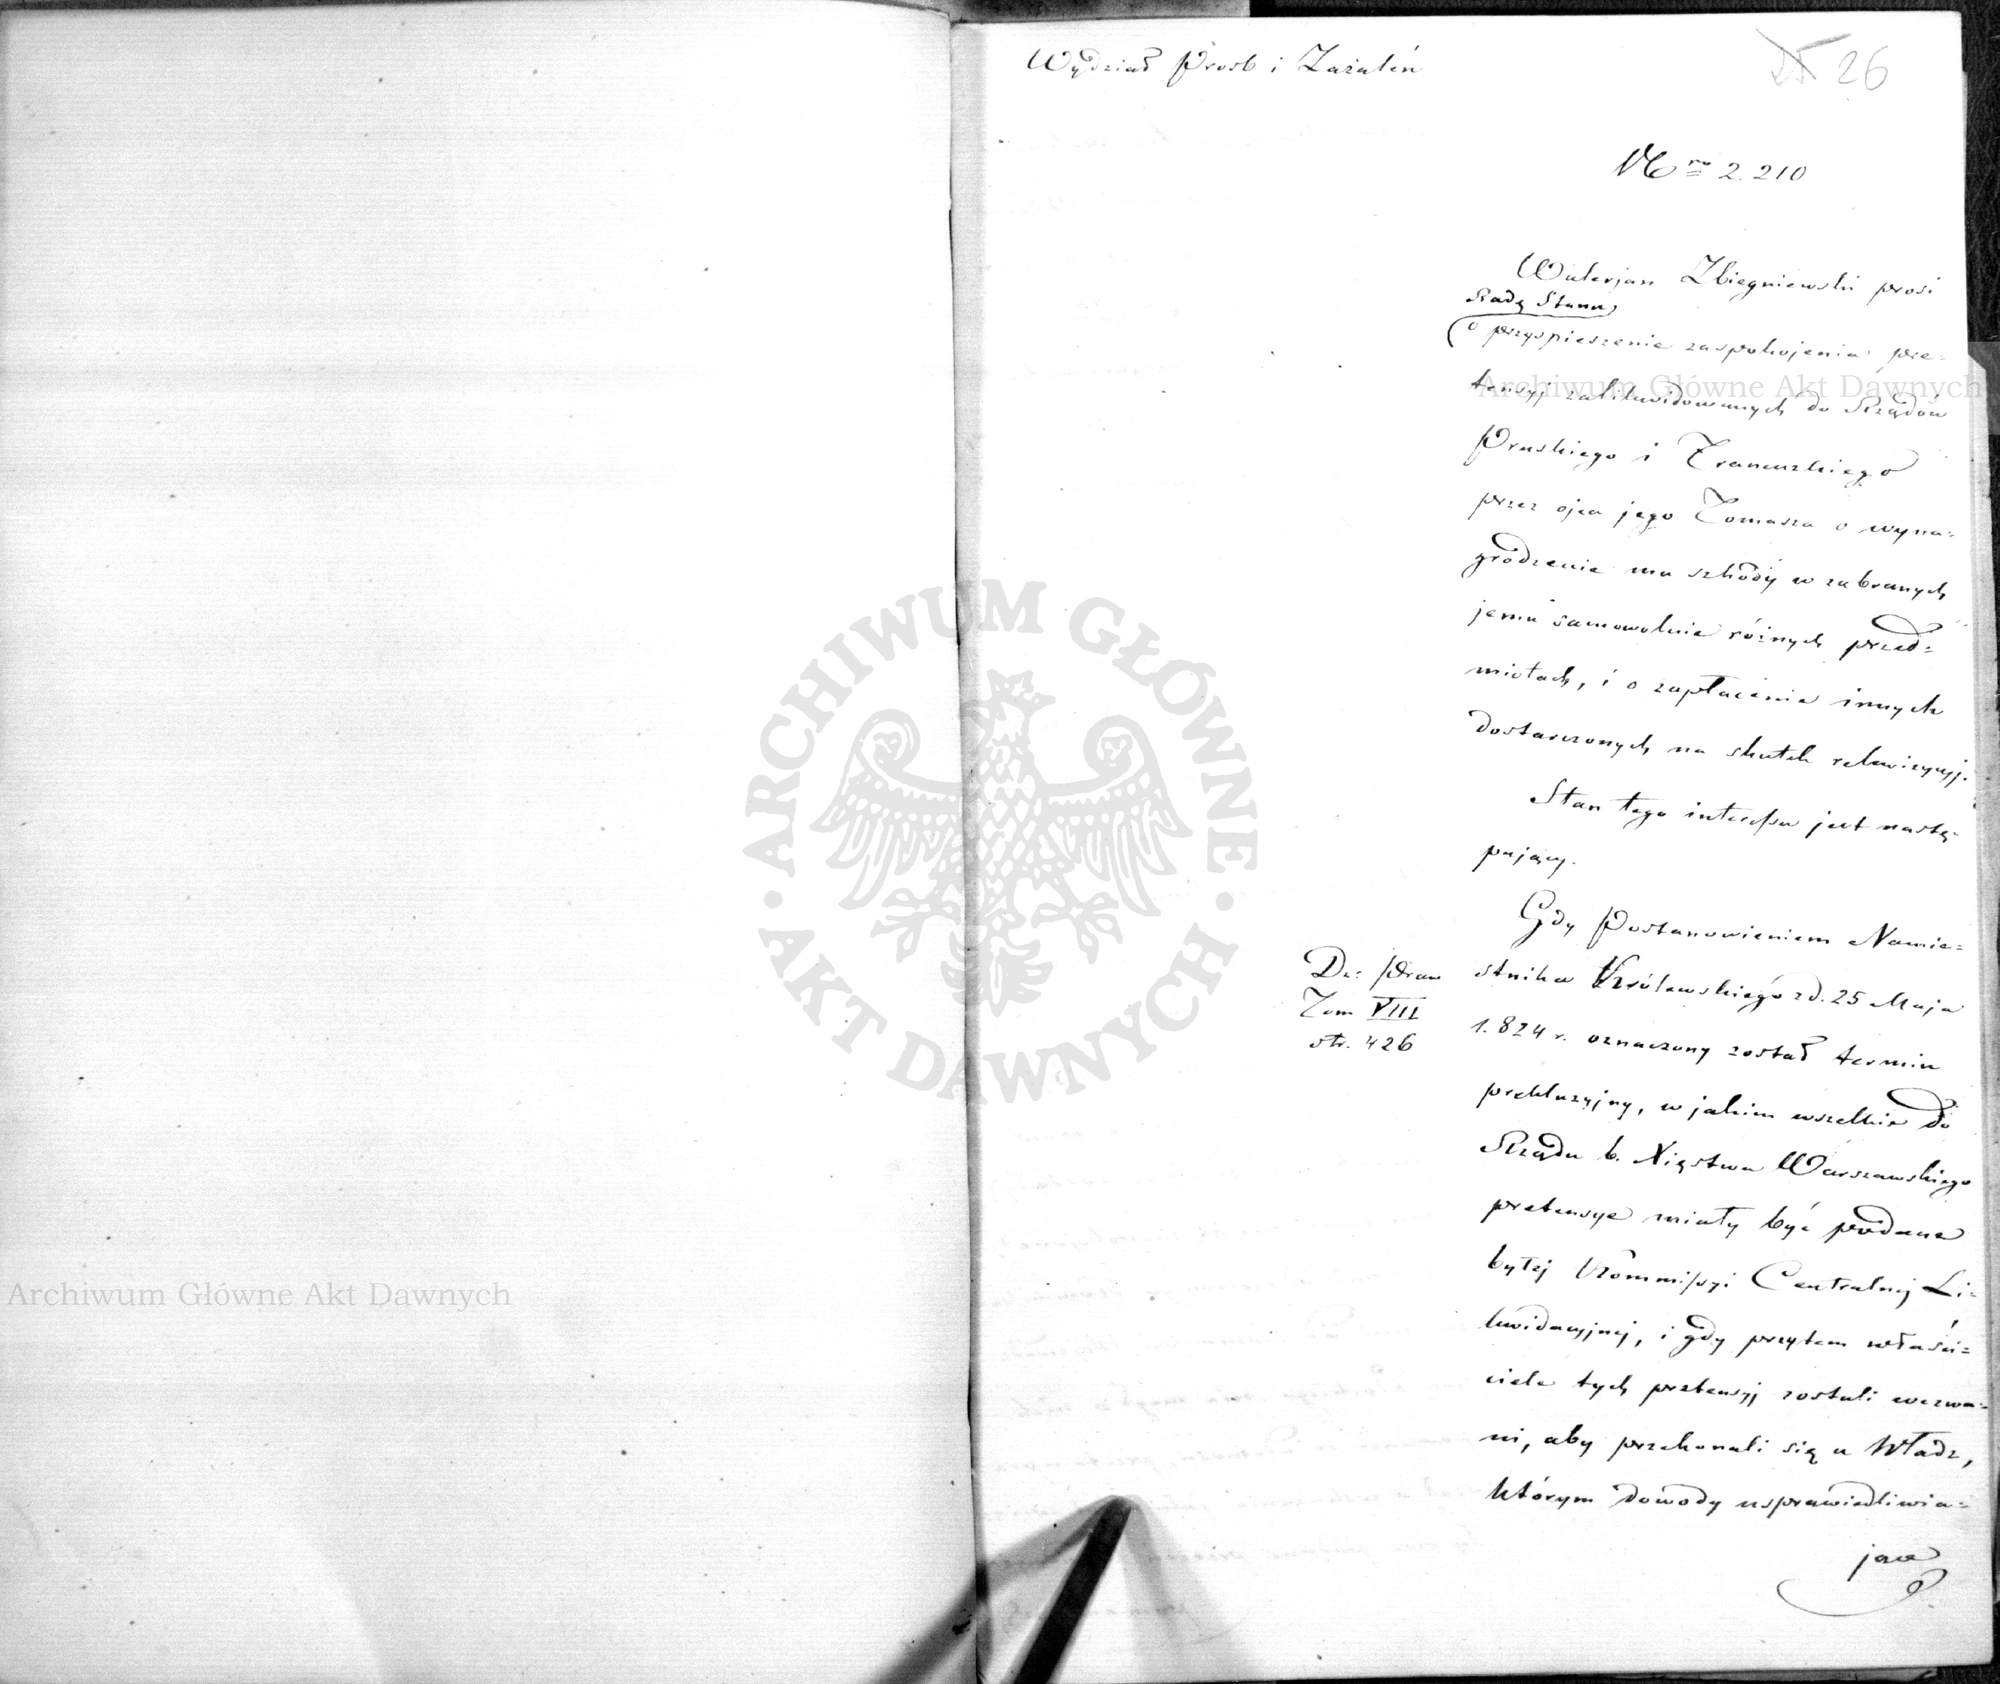 Wydział Prosb i Zażaleń
26
Nro 2.210
Walerjan Zbiegniewski prosi
Radę Stanu
o przyspieszenie zaspokojenia pre=
tensyj zalikwidowanych do Rządów
Pruskiego i Francuzkiego
przez ojca jego Tomasza o wyna=
grodzenie mu szkody w zabranych
jemu samowolnie różnych przed=
miotach, i o zapłacenie innych
dostarczonych na skutek rekwizycyj.
Stan tego interessu jest nastę=
pujący.
Gdy Postanowieniem Namie=
stnika Królewskiego z d. 25 Maja
1.824 r. oznaczony został termin
prekluzyjny, w jakim wszelkie do
Rządu b. Xięstwa Warszawskiego
pretensye miały być podane
byłej Kommissyi Centralnej Li=
kwidacyjnej, i gdy przytem właści=
ciele tych pretensyj zostali wezwa=
ni, aby przekonali się u Władz,
którym dowody usprawiedliwia=
jące
Dz: Praw
Tom VIII
str. 426
Archiwum Główne Akt Dawnych
Archiwum Główne Akt Dawnych
ARCHIWUM GŁÓWNE
AKT DAWNYCH